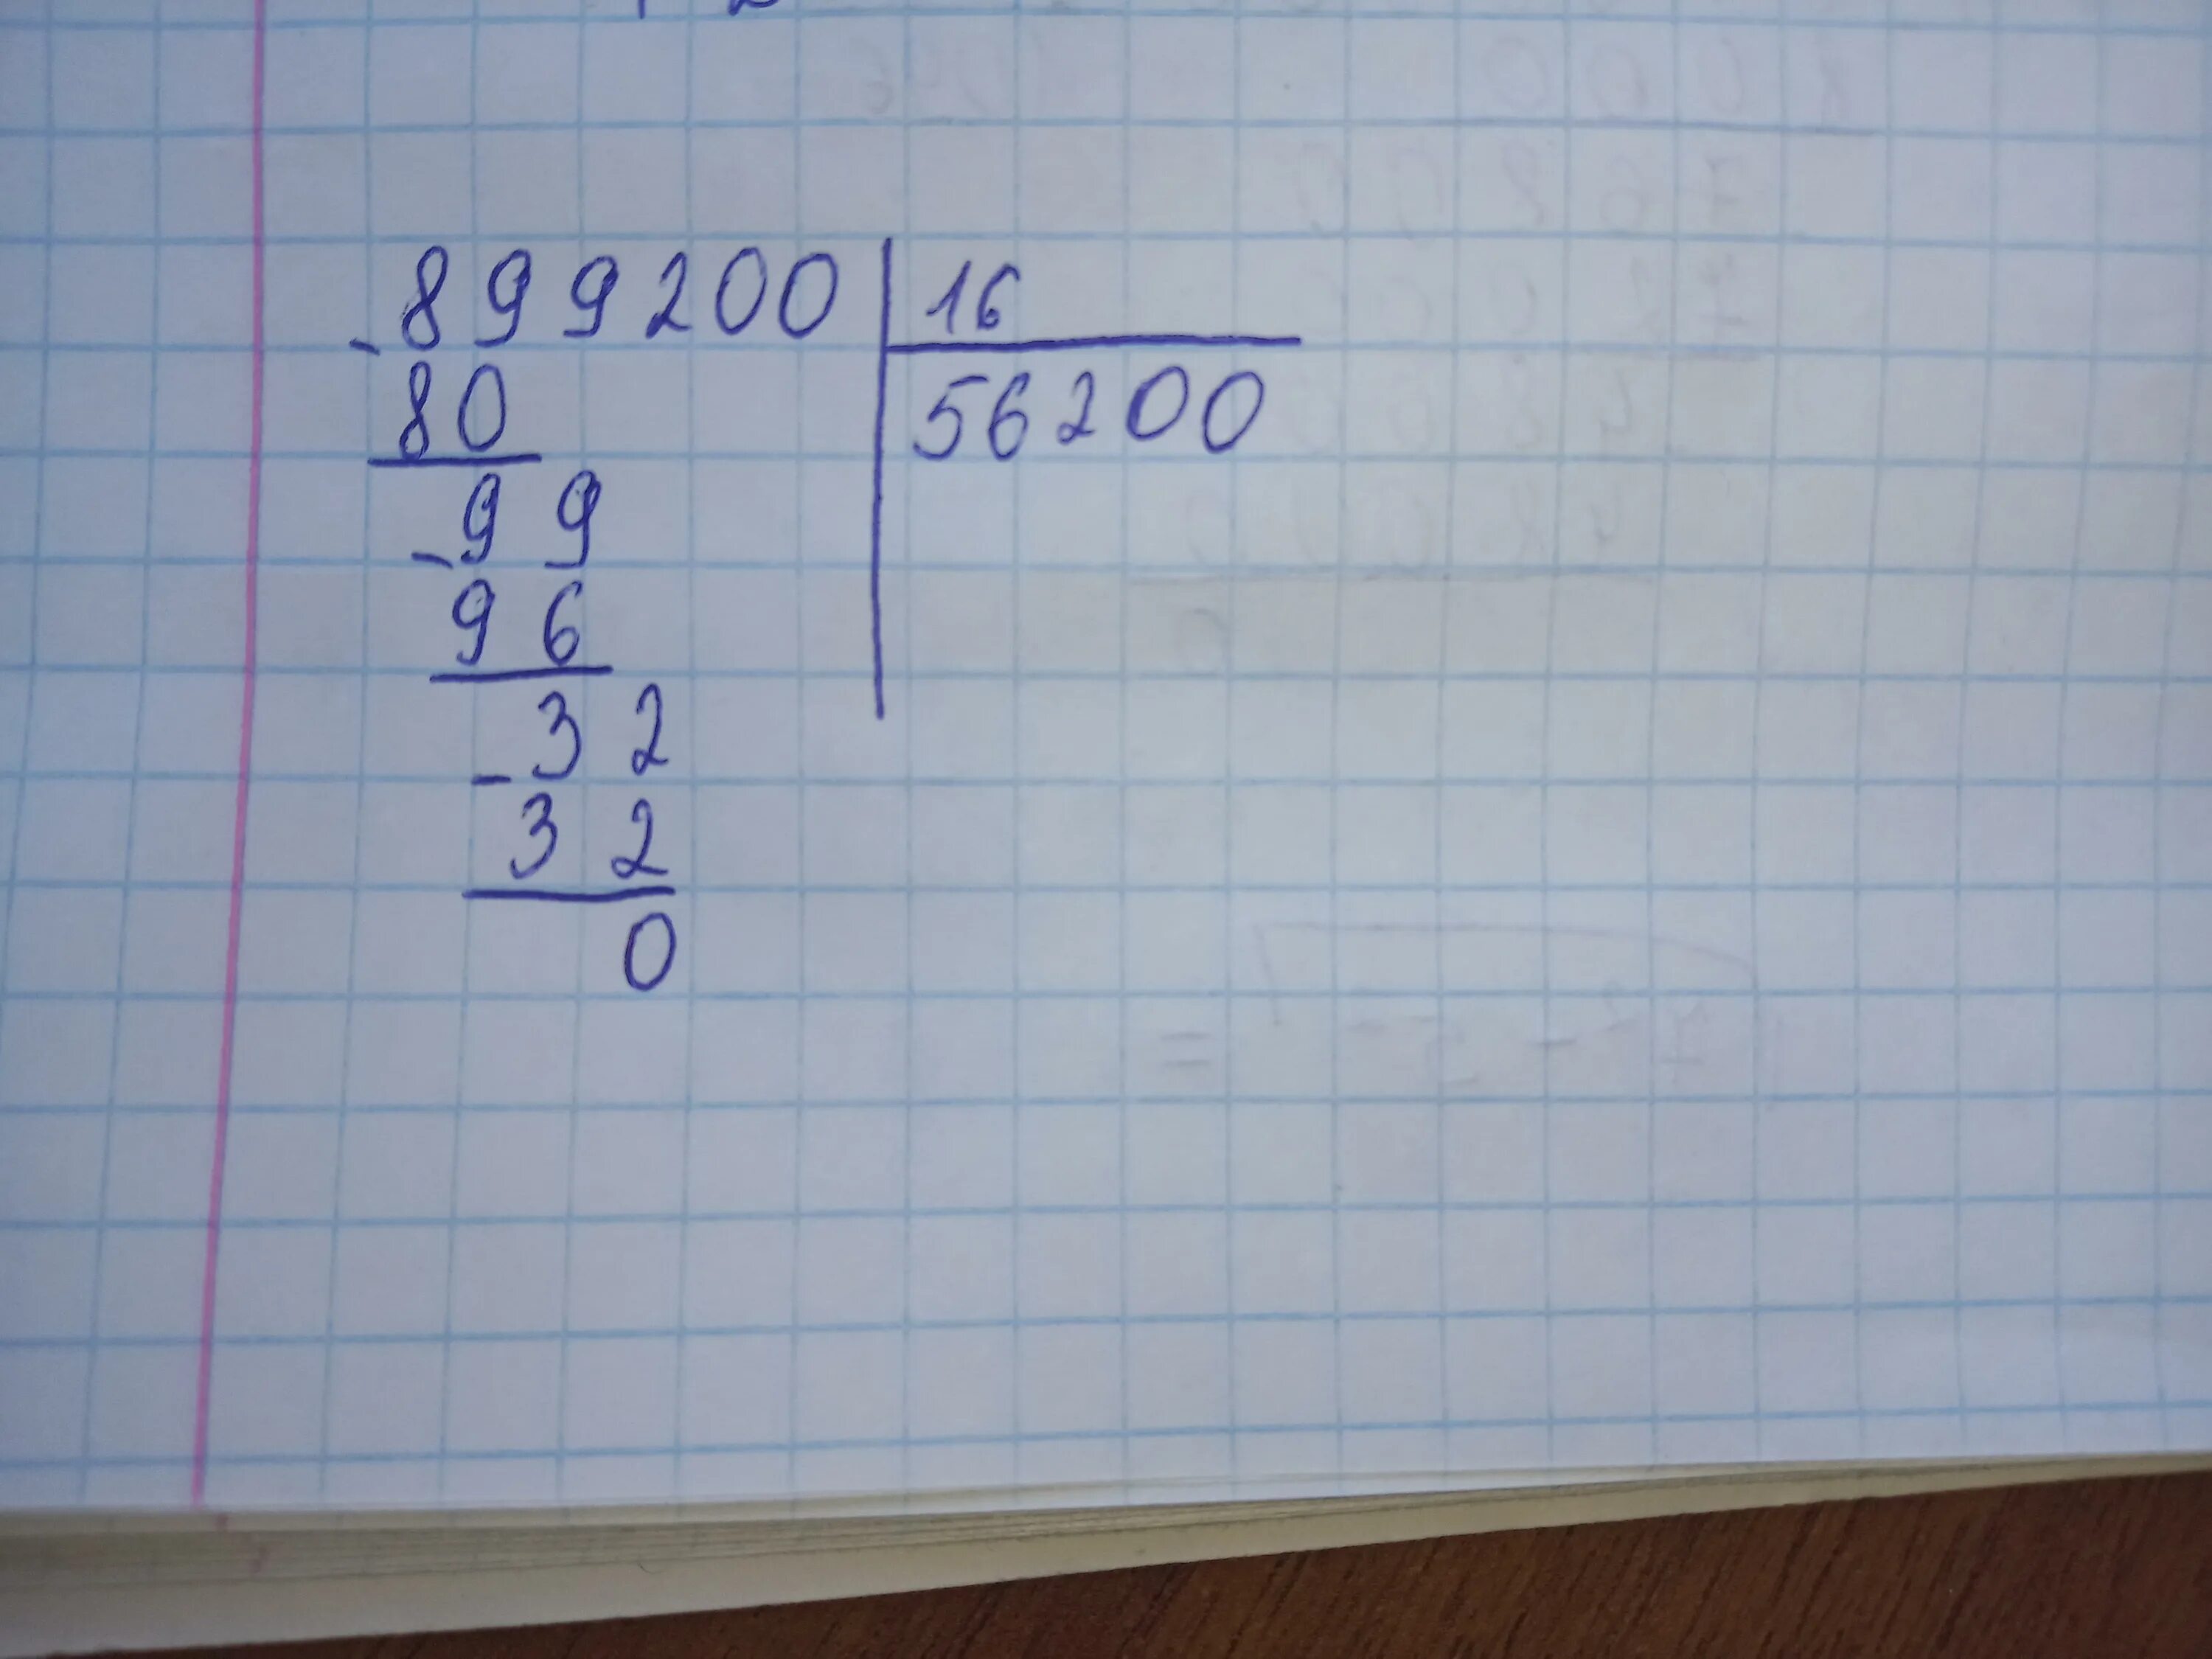 - 899200 | 16
80 | 56200
- 99
96
- 32
32
0